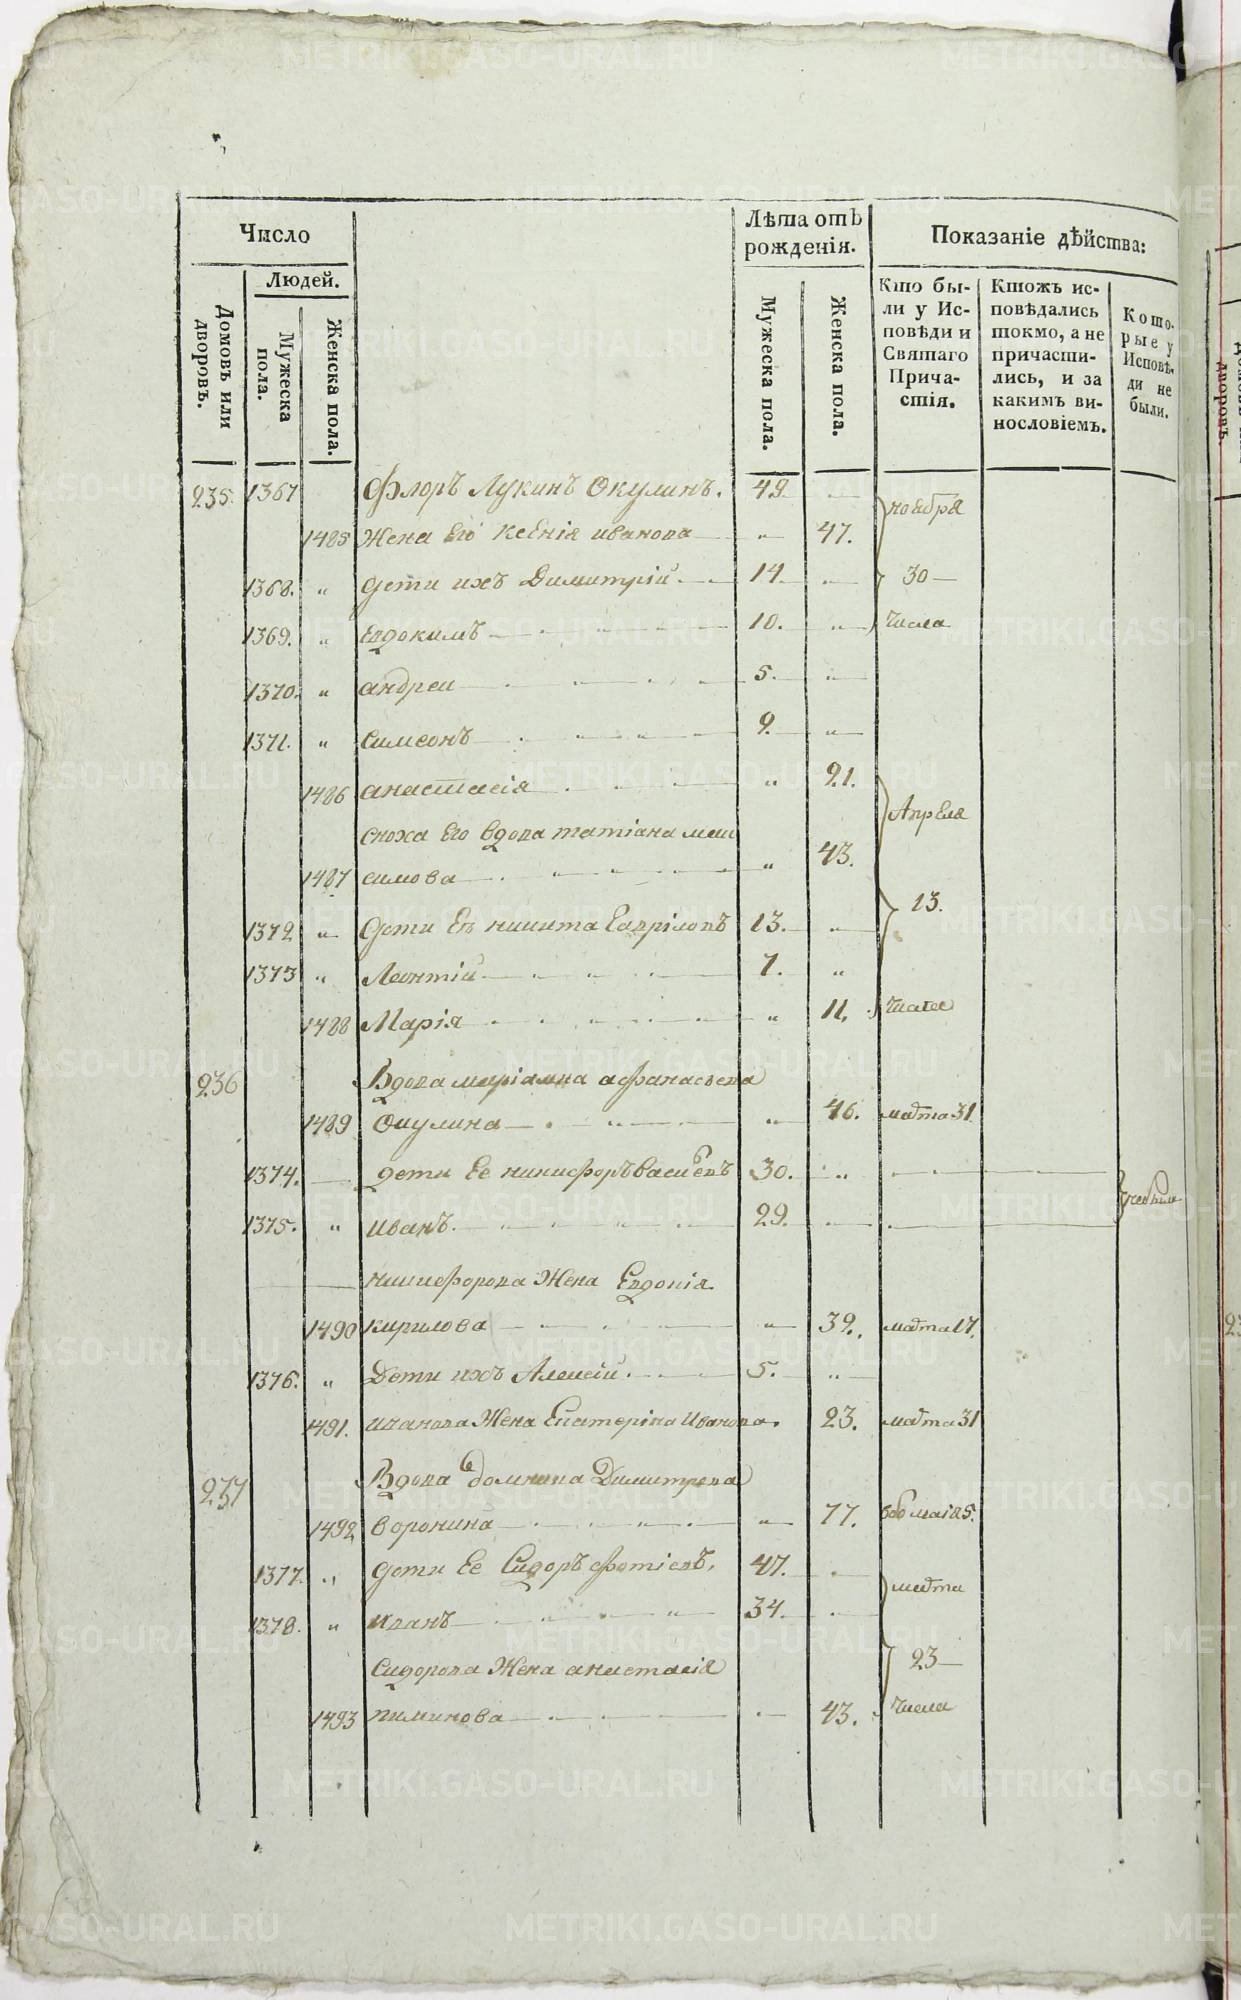 Число
Людей.
Домовъ или
дворовъ.
Мужеска
пола.
Женска пола.
Лѣта отъ
рожденія.
Мужеска пола.
Женска пола.
Показаніе дѣйства:
Кто бы-
ли у Ис-
повѣди и
Святаго
Прича-
стія.
Ктожъ ис-
повѣдались
токмо, а не
причасти-
лись, и за
какимъ ви-
нословіемъ.
Кото-
рые у
Исповѣ-
ди не
были.
235 1367 Флоръ Лукинъ Окулинъ. 49.
ноября
1485 Жена Его Ксенія иванова " 47.
1368. " дети ихъ Димитрій. 14. 30
1369. " Евдокимъ 10. " числа
1370. " андреи 5. "
1371. " симеонъ 9. "
1486 анастасія " 21.
Апреля
сноха Его вдова татіана мак
1487 симова " 43.
13.
1372 " дети Ея никита Гаврiловъ 13. "
1373 " Леонтій 7. "
1488 Марія " 11. числа
236 Вдова маріамна афанасьева
1489 Окулина " 46. марта 31
1374. дети Ее никифоръ Васильевъ 30. "
небыли
1375. " иванъ. 29.
никифорова Жена Евдокія
1490 кирилова " 39. марта 17.
1376. " Дети ихъ Алексій. 5. "
1491. иванова Жена Екатеріна Иванова. 23. марта 31
237 Вдова домнина Димитрева
1492 воронина " 77.
1377. " дети Ее Сидоръ фотіевъ. 47.
марта
1378. " иванъ 34.
23
Сидорова Жена анастасія
1493 пиминова 43. числа
METRIKI.GASO-URAL.RU